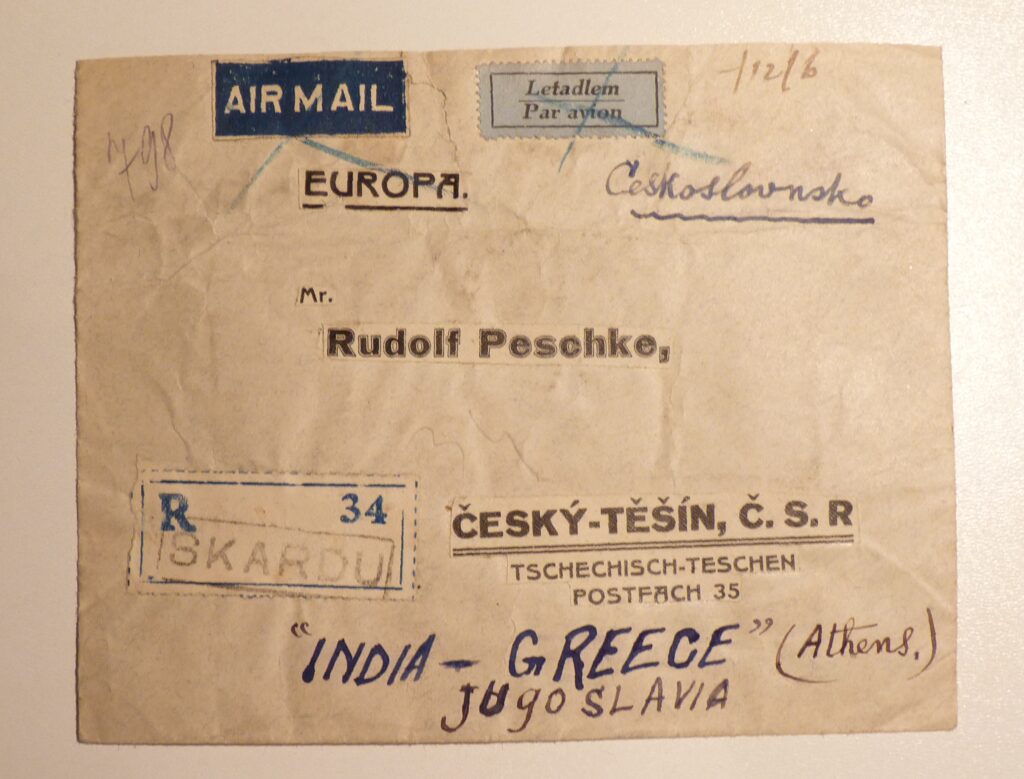 AIR MAIL
Letadlem
Par avion
-/12/6
798
EUROPA.
Českoslovnsko
Mr.
Rudolf Peschke,
R 34
SKARDU
ČESKÝ-TĚŠÍN, Č. S. R
TSCHECHISCH-TESCHEN
POSTFACH 35
"INDIA - GREECE" (Athens.)
JUgoSLAVIA